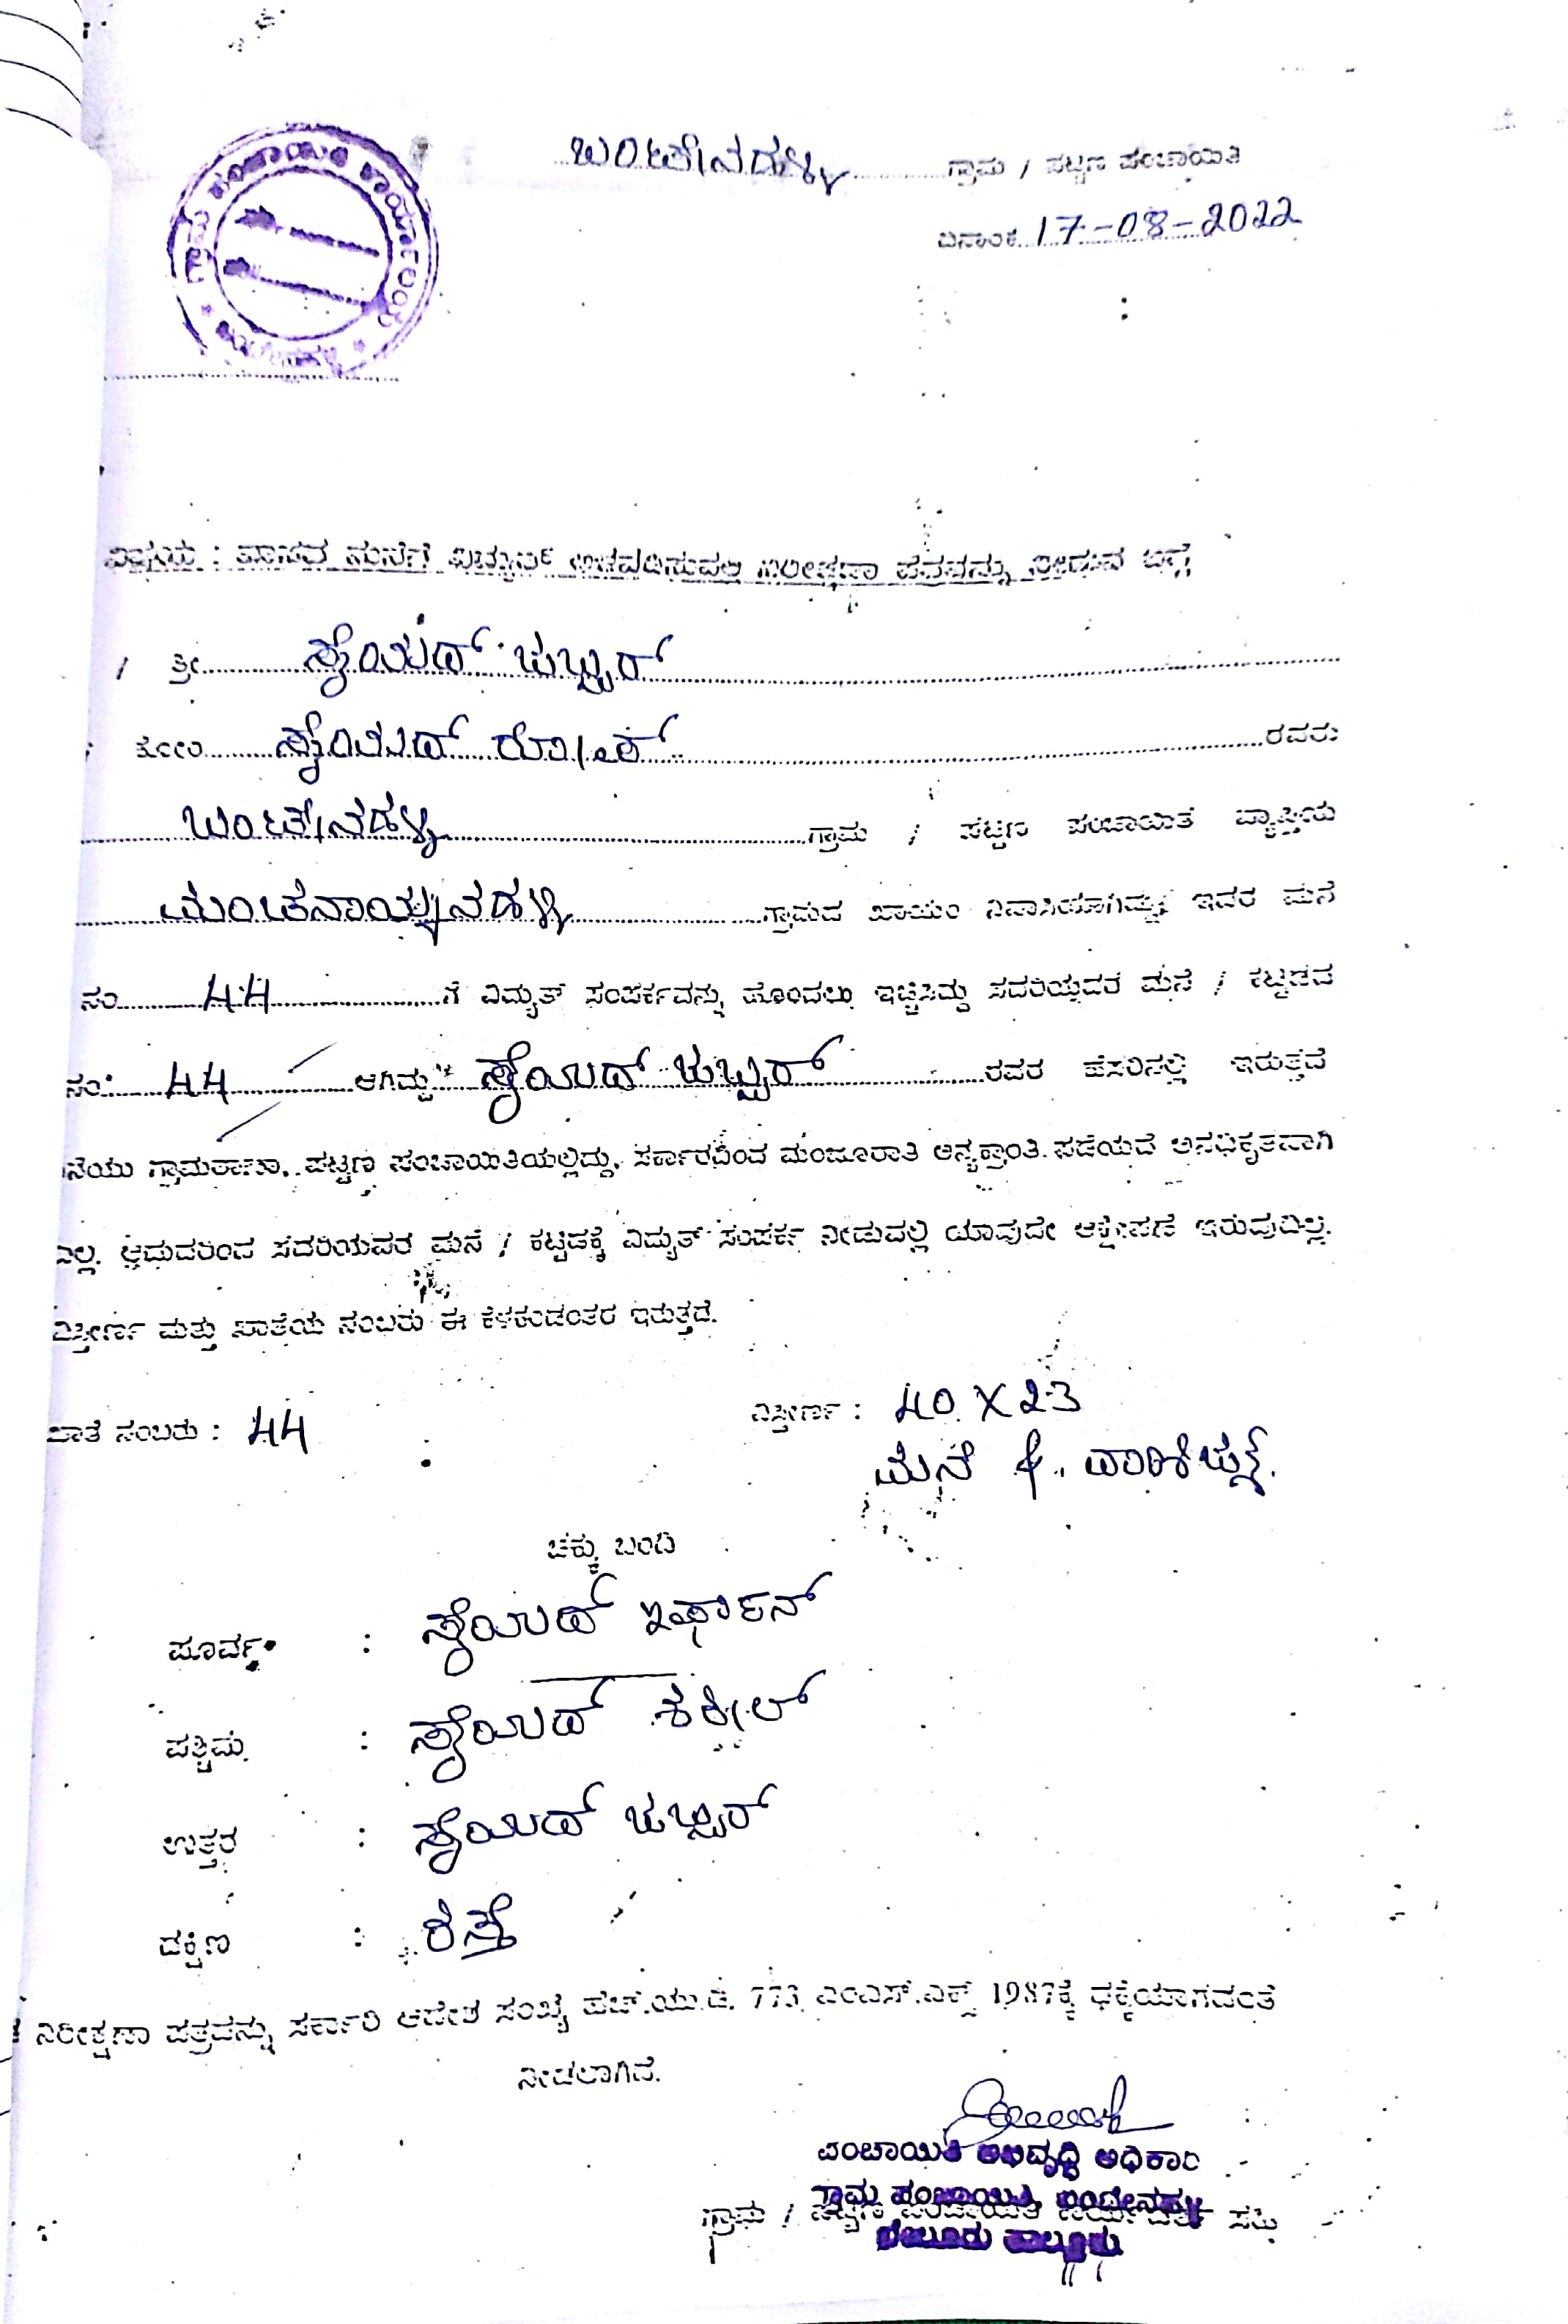 ಗ್ರಾಮ ಪಂಚಾಯಿತಿ ಕಾರ್ಯಾಲಯ
ಬಂಟೇನಹಳ್ಳಿ ಗ್ರಾಮ / ಪಟ್ಟಣ ಪಂಚಾಯಿತಿ
ದಿನಾಂಕ 17-08-2022
ವಿಷಯ : ವಾಸದ ಮನೆಗೆ ವಿದ್ಯುತ್ ಅಳವಡಿಸುವಲ್ಲಿ ನಿರೀಕ್ಷಣಾ ಪತ್ರವನ್ನು ನೀಡುವ ಬಗ್ಗೆ
/ ಶ್ರೀ ಸೈಯದ್ ಜಬ್ಬರ್
ಕೋಂ ಸೈಯದ್ ರವರು
ಬಂಟೇನಹಳ್ಳಿ ಗ್ರಾಮ / ಪಟ್ಟಣ ಪಂಚಾಯಿತಿ ವ್ಯಾಪ್ತಿಯ
ಮಂಚನಾಯ್ಕನಹಳ್ಳಿ ಗ್ರಾಮದ ಖಾಯಂ ನಿವಾಸಿಯಾಗಿದ್ದು, ಇವರ ಮನೆ
ನಂ 44 ಗೆ ವಿದ್ಯುತ್ ಸಂಪರ್ಕವನ್ನು ಹೊಂದಲು ಇಚ್ಛಿಸಿದ್ದು ಸದರಿಯವರ ಮನೆ / ಕಟ್ಟಡದ
ನಂ: 44 ಆಗಿದ್ದು ಸೈಯದ್ ಜಬ್ಬರ್ ರವರ ಹೆಸರಿನಲ್ಲಿ ಇರುತ್ತದೆ
ನೆಯು ಗ್ರಾಮಠಾಣಾ, ಪಟ್ಟಣ ಪಂಚಾಯಿತಿಯಲ್ಲಿದ್ದು, ಸರ್ಕಾರದಿಂದ ಮಂಜೂರಾತಿ ಅನ್ಯಕ್ರಾಂತಿ ಪಡೆಯದೆ ಅನಧಿಕೃತವಾಗಿ
ವಿಲ್ಲ. ಆದುದರಿಂದ ಸದರಿಯವರ ಮನೆ / ಕಟ್ಟಡಕ್ಕೆ ವಿದ್ಯುತ್ ಸಂಪರ್ಕ ನೀಡುವಲ್ಲಿ ಯಾವುದೇ ಆಕ್ಷೇಪಣೆ ಇರುವುದಿಲ್ಲ.
ವಿಸ್ತೀರ್ಣ ಮತ್ತು ಖಾತೆಯ ನಂಬರು ಈ ಕೆಳಕಂಡಂತರ ಇರುತ್ತದೆ.
ಖಾತೆ ನಂಬರು : 44 ವಿಸ್ತೀರ್ಣ : 40 X 23
ಮನೆ
ಚಕ್ಕು ಬಂದಿ
ಪೂರ್ವ : ಸೈಯದ್ ಇರ್ಫಾನ್
ಪಶ್ಚಿಮ : ಸೈಯದ್ ಶಕೀಲ್
ಉತ್ತರ : ಸೈಯದ್ ಜಬ್ಬರ್
ದಕ್ಷಿಣ : ರಸ್ತೆ
ನಿರೀಕ್ಷಣಾ ಪತ್ರವನ್ನು ಸರ್ಕಾರಿ ಆದೇಶ ಸಂಖ್ಯೆ ಹೆಚ್.ಯು.ಡಿ. 773 ಎಂಎಸ್.ಎಕ್ಸ್ 1987ಕ್ಕೆ ಧಕ್ಕೆಯಾಗದಂತೆ
ನೀಡಲಾಗಿದೆ.
ಪಂಚಾಯಿತಿ ಅಭಿವೃದ್ಧಿ ಅಧಿಕಾರಿ
ಗ್ರಾಮ ಪಂಚಾಯಿತಿ, ಬಂಟೇನಹಳ್ಳಿ
ಗ್ರಾಮ / ಪಟ್ಟಣ ಪಂಚಾಯಿತಿ ಸಹಿ
ಬೇಲೂರು ತಾಲ್ಲೂಕು